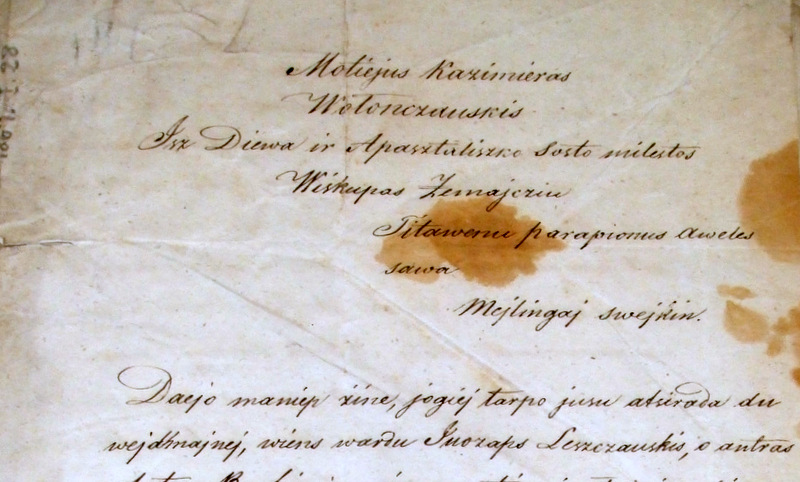 Motiejus Kazimieras
Wołonczauskis
Isz Diewa ir Apasztaliszko Sosto milestos
Wiskupas Żemajcziu
Titawenu parapionus aweles
sawa
Mejlingaj swejkin.
Daejo maniep żine, jogiej tarpo jusu atsirada du
wejdmajnej, wiens wardu Juozaps Leszczauskis, o antras